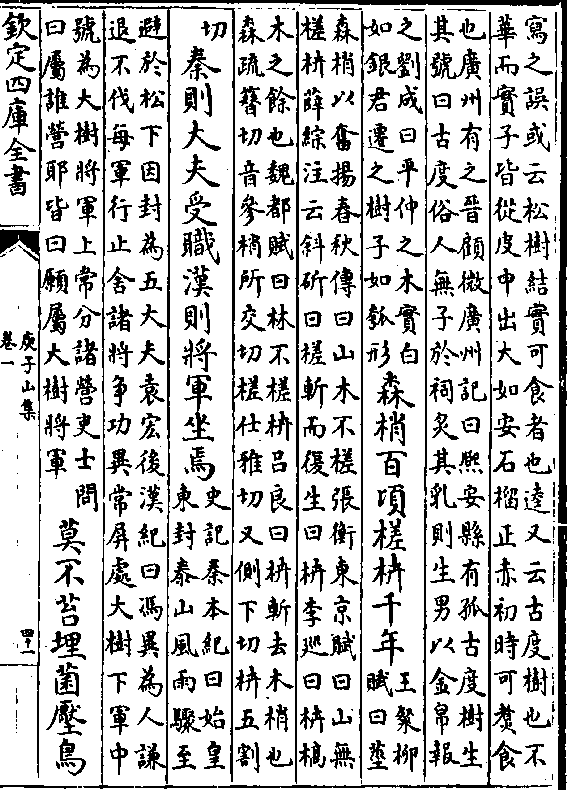 寫之誤或云松樹結實可食者也逵又云古度樹也不
華而實子皆從皮中出大如安石榴正赤初時可煑食
也廣州有之晉顧微廣州記曰熙安縣有孤古度樹生
其號曰古度俗人無子於祠炙其乳則生男以金帛報
之劉成曰平仲之木實白
如銀君遷之樹子如瓠形
森梢百頃槎枿千年
王粲柳
賦曰
森梢以奮揚春秋傳曰山木不槎張衡東京賦曰山無
槎枿薛綜注云斜斫曰槎斬而復生曰枿李廵曰枿槁
木之餘也魏都賦曰林不槎枿吕良曰枿斬去木梢也
森疏簪切音參梢所交切槎仕雅切又側下切枿五割
切
秦則大夫受職漢則將軍坐焉
史記秦本紀曰始皇
東封泰山風雨驟至
避於松下因封為五大夫袁宏後漢紀曰馮異為人謙
退不伐每軍行止舍諸將争功異常屏處大樹下軍中
號為大樹將軍上常分諸營吏士問
曰屬誰營耶皆曰願屬大樹將軍
莫不苔埋菌壓鳥
欽定四庫全書
庾子山集
卷一
四十一